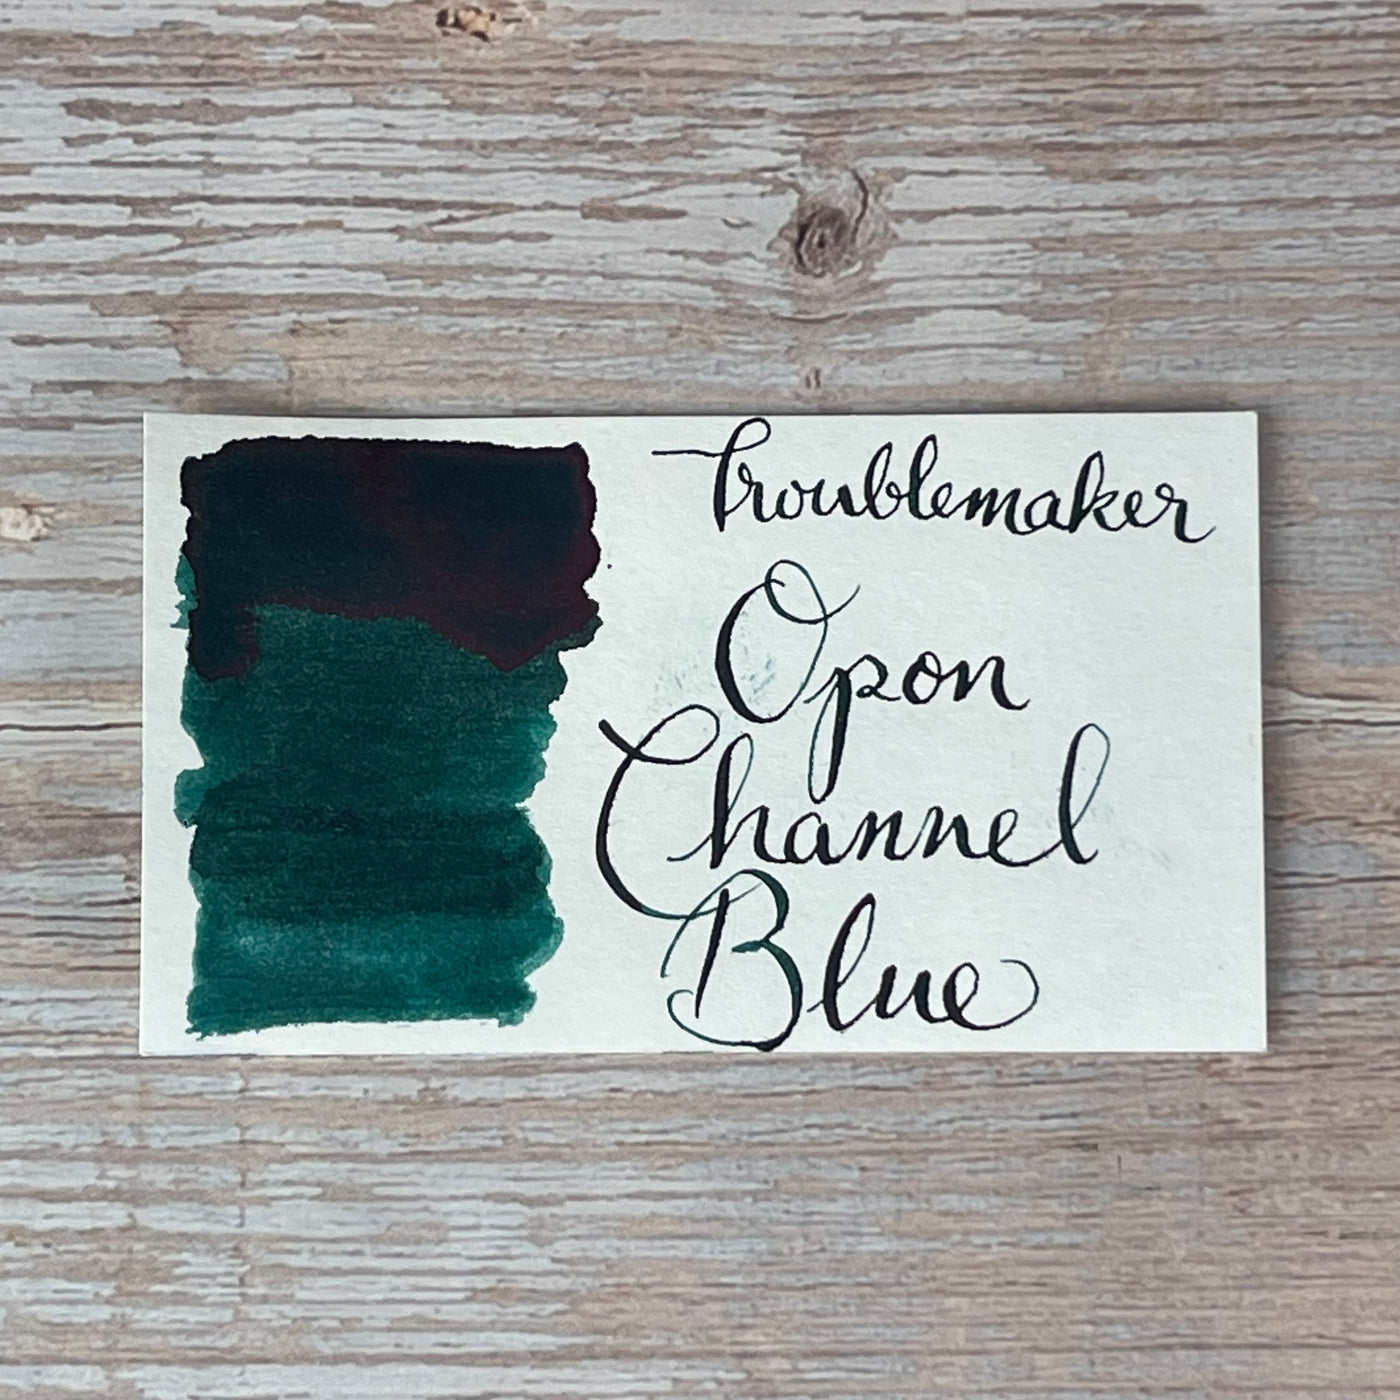 Troublemaker
Opon
Channel
Blue